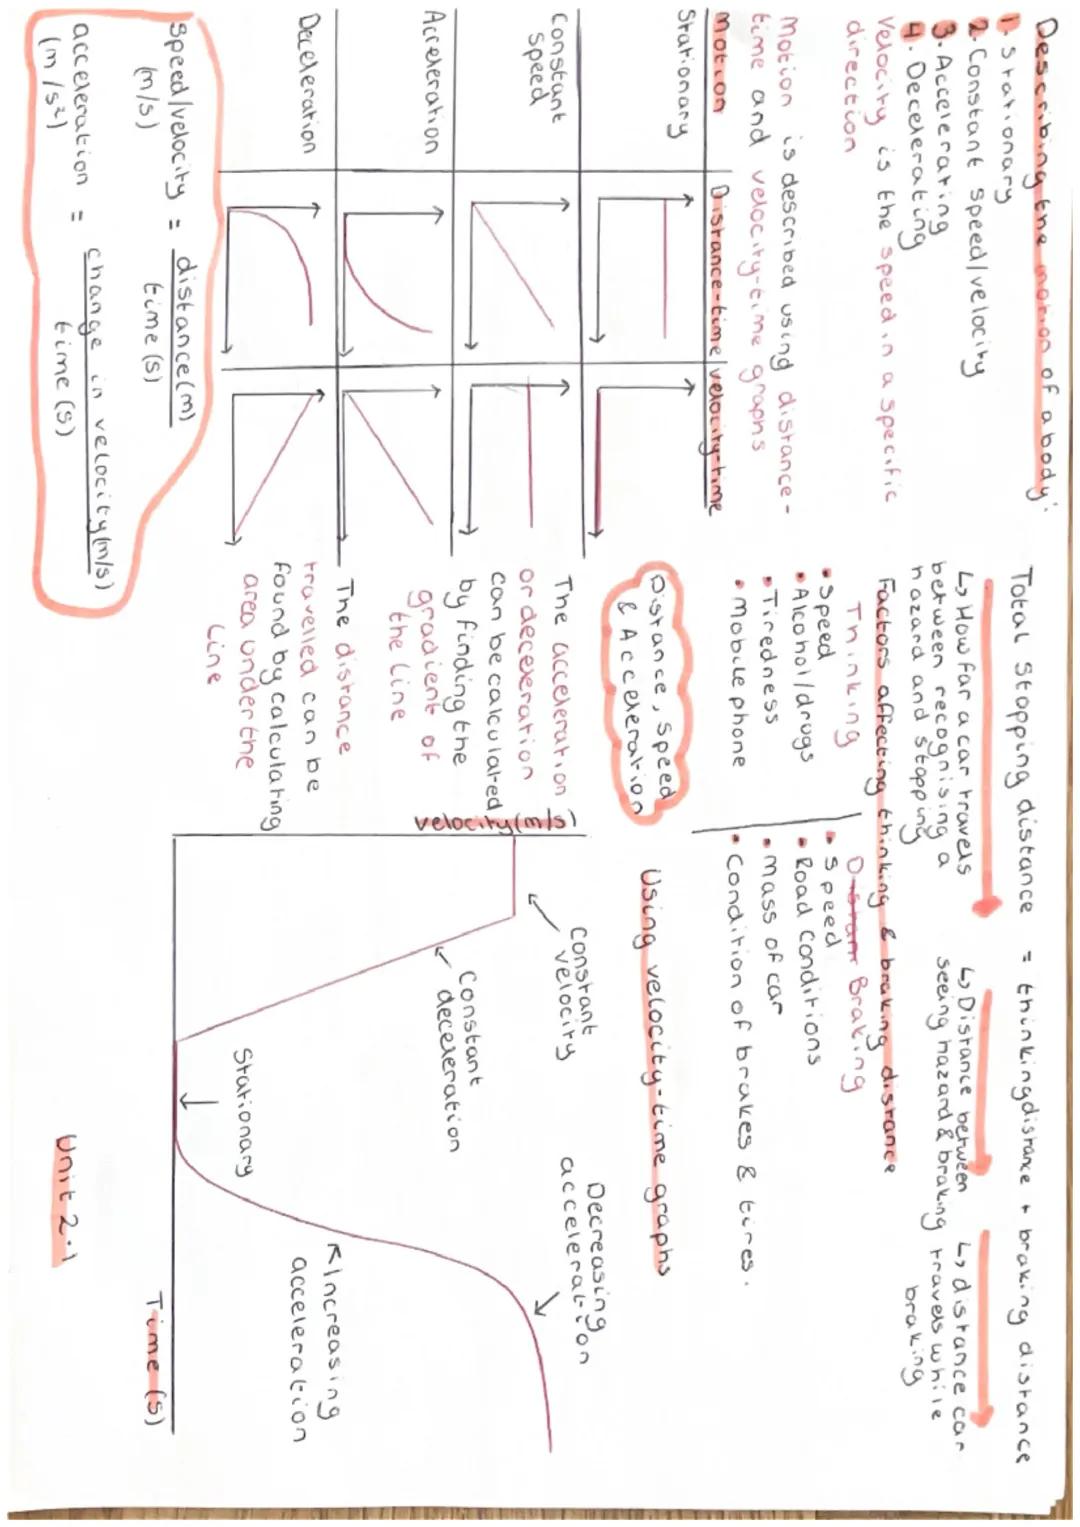 Describing the motion of a body:
1. Stationary
2. Constant speed/velocity
3. Accelerating
4. Decelerating
Velocity is the speed in a specific
direction
Motion is described using distance-
time and velocity-time graphs
Motion Distance-time velocity-time
Stationary
Constant
speed
Acceleration
Deceleration
speed/velocity = distance(m)
(m/s) time(s)
acceleration = change in velocity(m/s)
(m/s²) time(s)
Total stopping distance = thinking distance + braking distance
↳ How far a car travels
between recognising a
hazard and stopping
↳ Distance between
seeing hazard & braking
↳ distance car
travels while
braking
Factors affecting thinking & braking distance
Thinking
• Speed
• Alcohol/drugs
• Tiredness
• Mobile phone
Braking
• Speed
• Road Conditions
• Mass of car
• Condition of brakes & tires.
Distance, Speed
& Acceleration
The acceleration
or deceleration
can be calculated
by finding the
gradient of
the line
The distance
travelled can be
found by calculating
area under the
line
Using velocity-time graphs
velocity(m/s)
Constant
velocity
Constant
deceleration
Stationary
Increasing
acceleration
Decreasing
acceleration
Time (s)
Unit 2.1